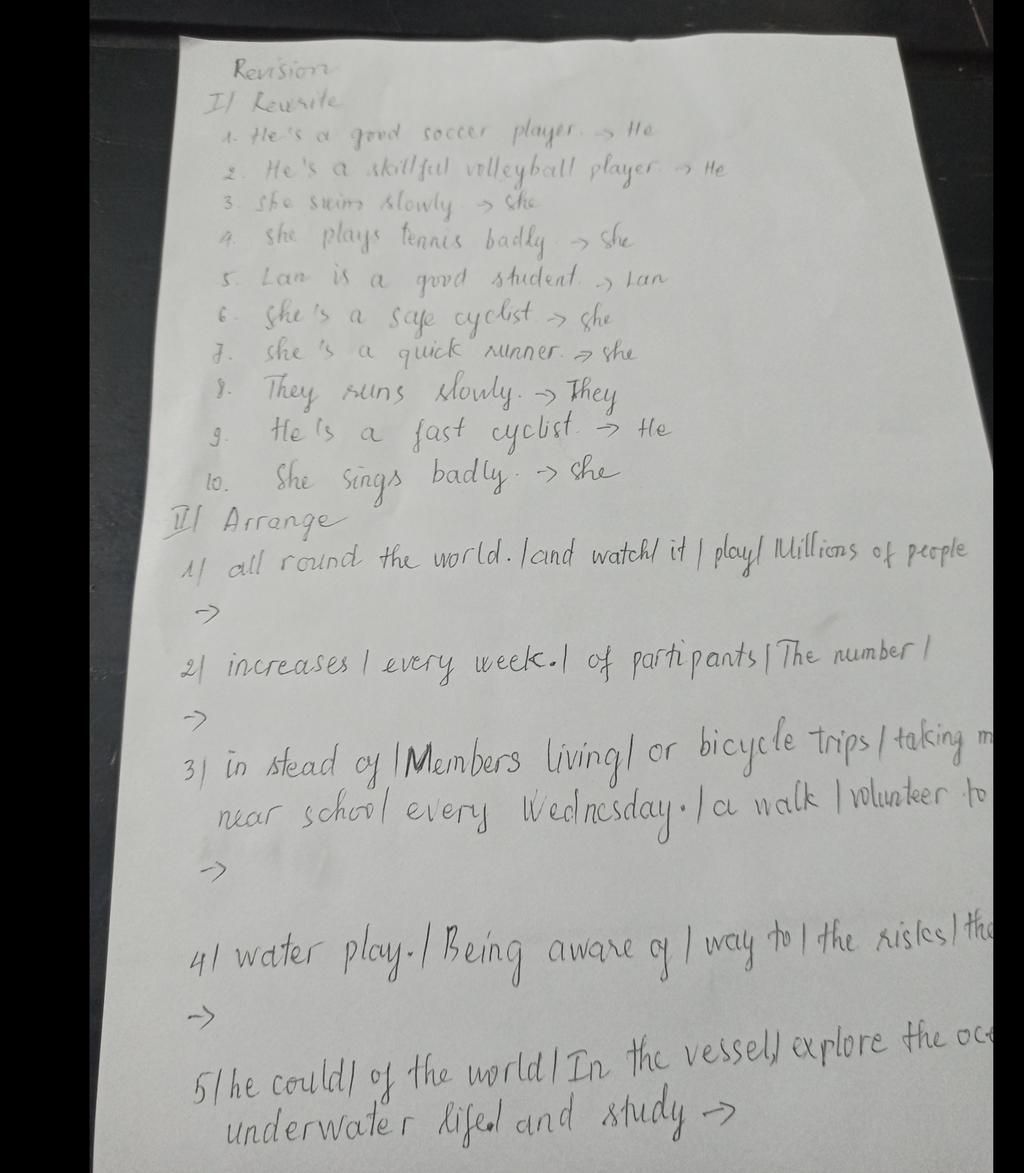 Revision
I/ Rewrite
1. He's a good soccer player. → He
2. He's a skillful volleyball player → He
3. She swims slowly → She
4. She plays tennis badly → She
5. Lan is a good student. → Lan
6. She's a safe cyclist → She
7. She's a quick runner. → She
8. They runs slowly. → They
9. He's a fast cyclist → He
10. She sings badly. → She
II/ Arrange
1/ all round the world. / and watch / it / play / Millions of people
→
2/ increases / every week. / of partipants / The number /
→
3/ in stead of / Members living / or bicycle trips / taking
near school / every Wednesday. / a walk / volunteer to
→
4/ water play. / Being aware of / way to / the risks /
→
5/ he could / of the world / In the vessel, / explore the
underwater life. / and study →